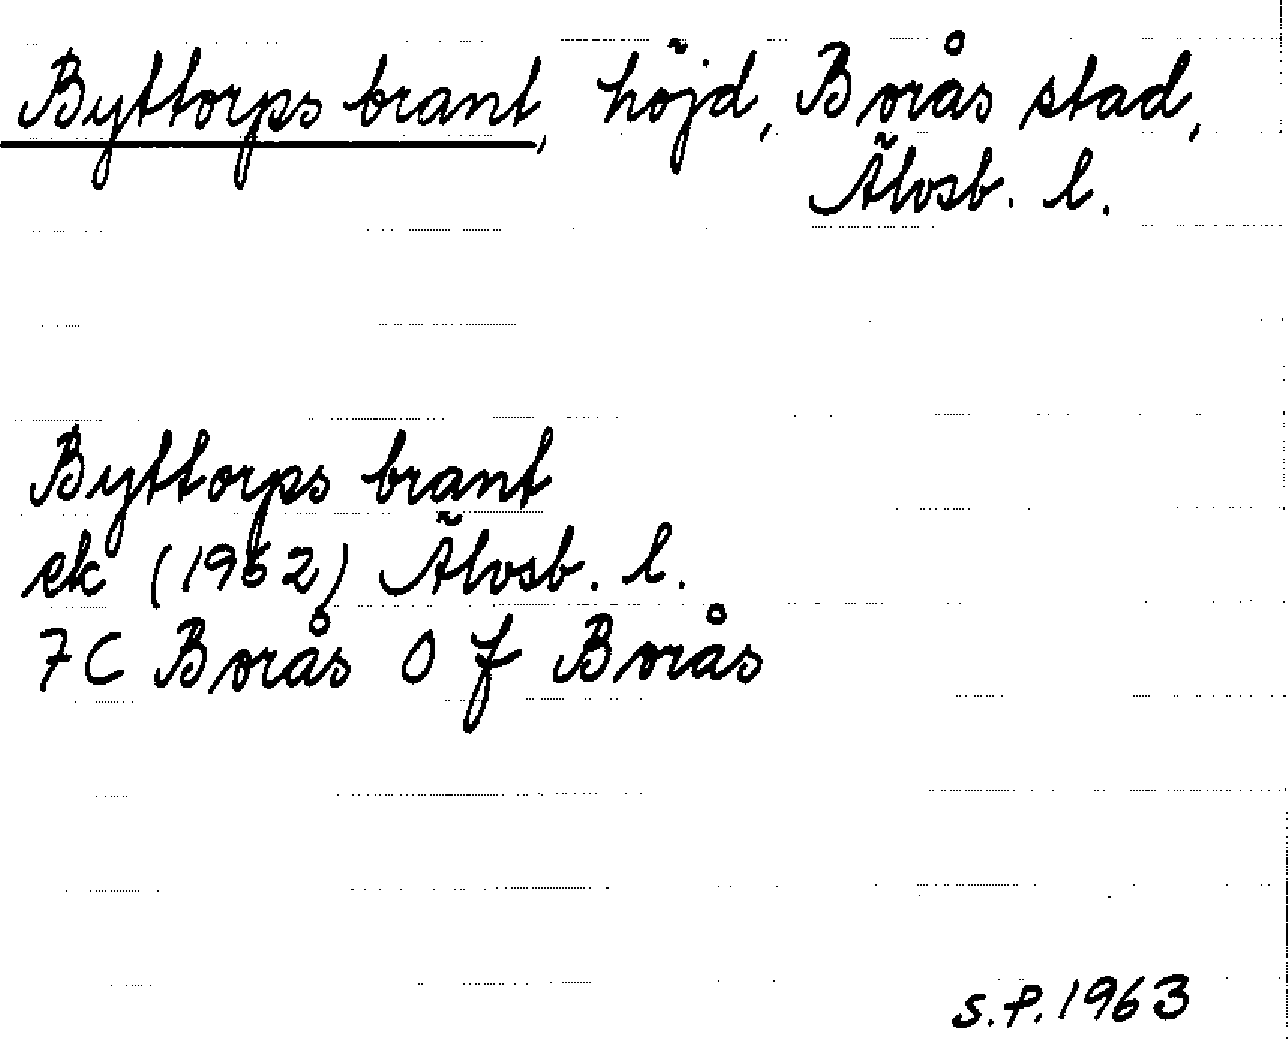 Byttorps brant, höjd, Borås stad,
Älvsb. l.
Byttorps brant
ek (1962) Älvsb. l.
7C Borås 0 f Borås
S.P. 1963